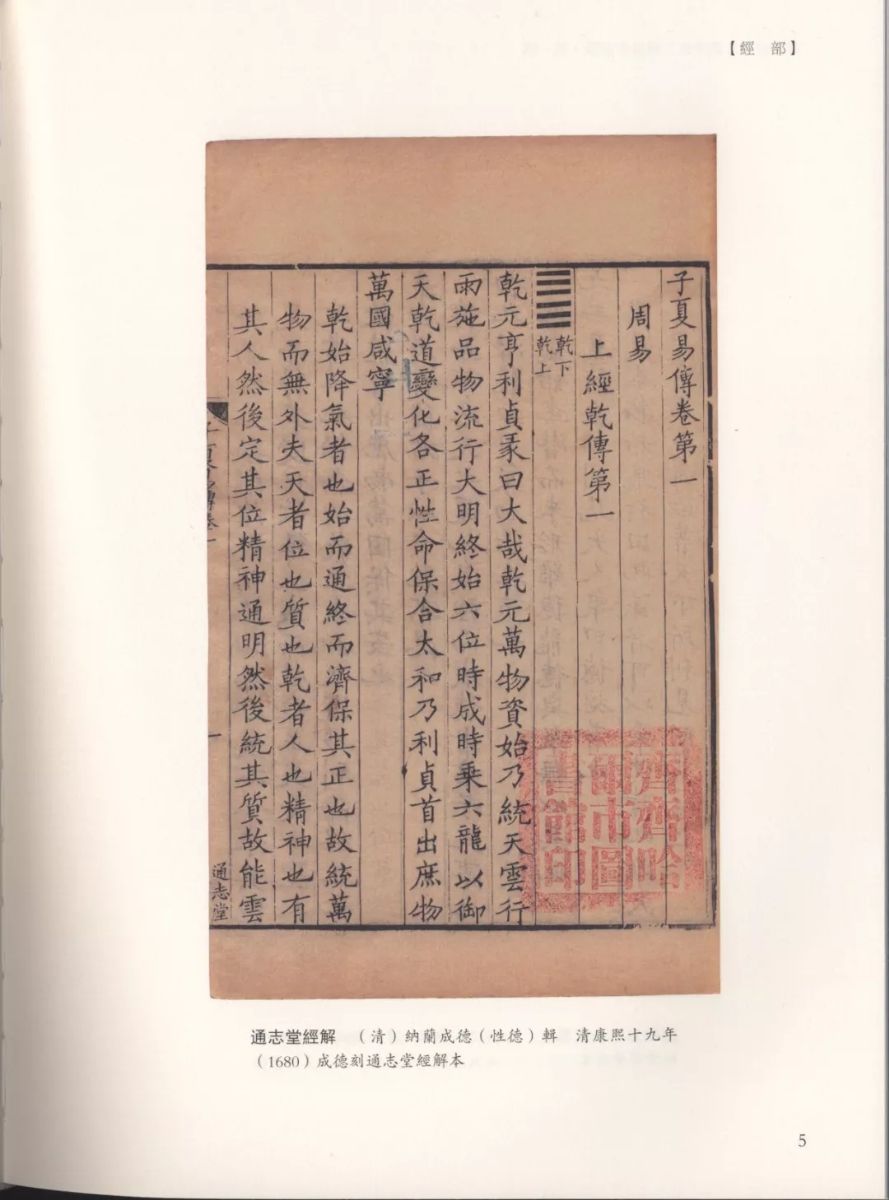 【經 部】
子夏易傳卷第一
周易
上經乾傳第一
乾下
乾上
乾元亨利貞彖曰大哉乾元萬物資始乃統天雲行
雨施品物流行大明終始六位時成時乘六龍以御
天乾道變化各正性命保合太和乃利貞首出庶物
萬國咸寧
乾始降氣者也始而通終而濟保其正也故統萬
物而無外夫天者位也質也乾者人也精神也有
其人然後定其位精神通明然後統其質故能雲
子夏易傳卷一
一
通志堂
齊齊哈
爾市圖
書館印
通志堂經解 （清）納蘭成德（性德）輯 清康熙十九年
（1680）成德刻通志堂經解本
5